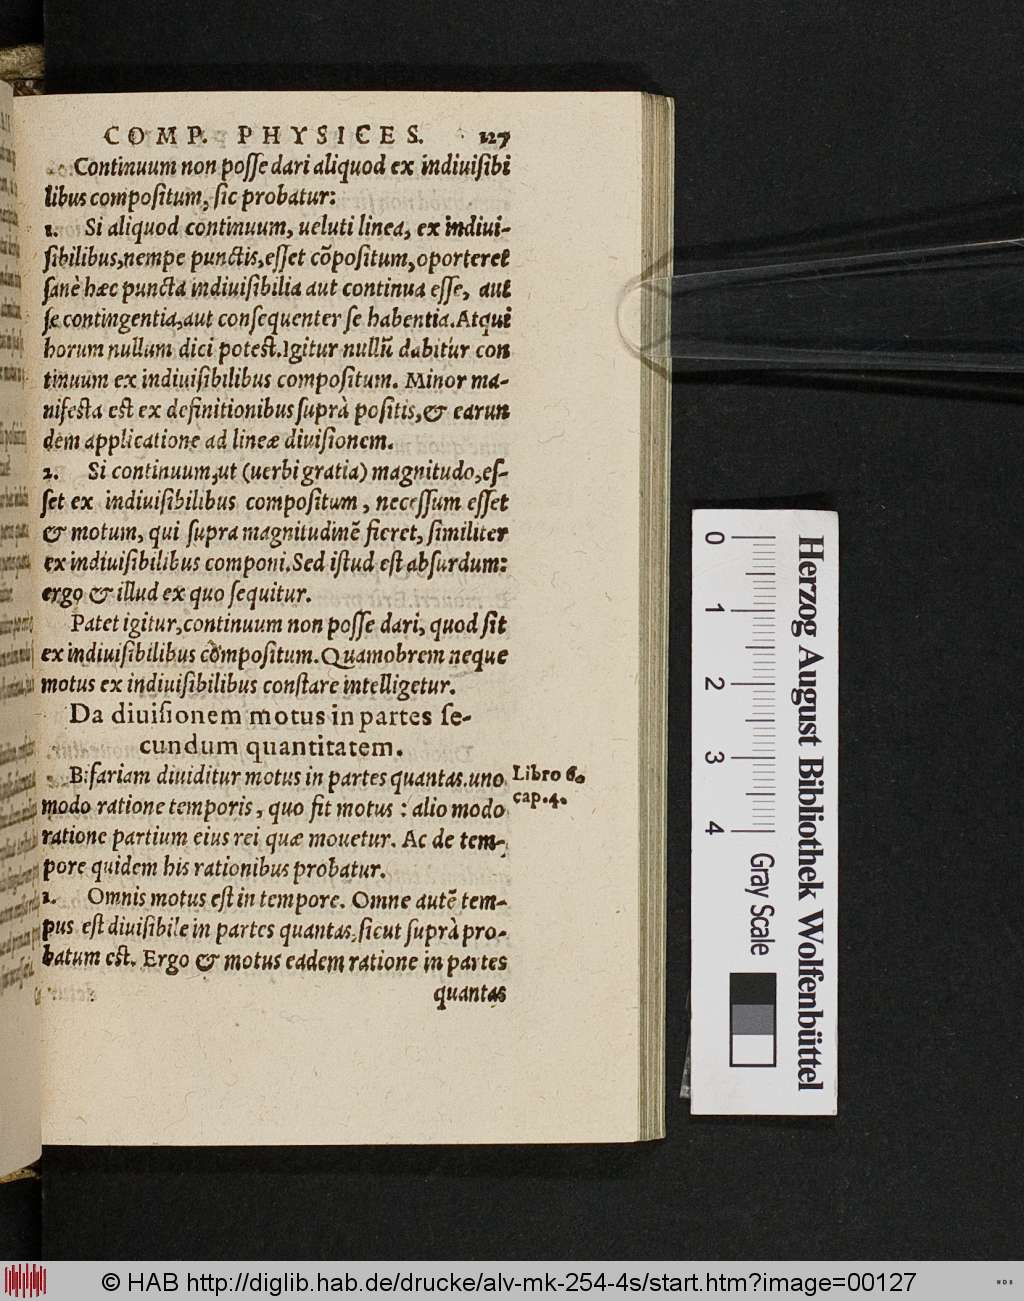 COMP. PHYSICES. 127
Continuum non posse dari aliquod ex indiuisibi
libus compositum, sic probatur:
1. Si aliquod continuum, ueluti linea, ex indiui-
sibilibus, nempe punctis, esset cōpositum, oporteret
sanè hæc puncta indiuisibilia aut continua esse, aut
se contingentia, aut consequenter se habentia. Atqui
horum nullum dici potest. Igitur nullū dabitur con
tinuum ex indiuisibilibus compositum. Minor ma-
nifesta est ex definitionibus suprà positis, & earun
dem applicatione ad lineæ diuisionem.
2. Si continuum, ut (uerbi gratia) magnitudo, es-
set ex indiuisibilibus compositum, necessum esset
& motum, qui supra magnitudinē fieret, similiter
ex indiuisibilibus componi. Sed istud est absurdum:
ergo & illud ex quo sequitur.
Patet igitur, continuum non posse dari, quod sit
ex indiuisibilibus compositum. Quamobrem neque
motus ex indiuisibilibus constare intelligetur.
Da diuisionem motus in partes se-
cundum quantitatem.
Bifariam diuiditur motus in partes quantas. uno
Libro 6.
modo ratione temporis, quo fit motus: alio modo
cap. 4.
ratione partium eius rei quæ mouetur. Ac de tem-
pore quidem his rationibus probatur.
1. Omnis motus est in tempore. Omne autē tem-
pus est diuisibile in partes quantas, sicut suprà pro-
batum est. Ergo & motus eadem ratione in partes
quantas
0 1 2 3 4
Gray Scale
Herzog August Bibliothek Wolfenbüttel
© HAB http://diglib.hab.de/drucke/alv-mk-254-4s/start.htm?image=00127